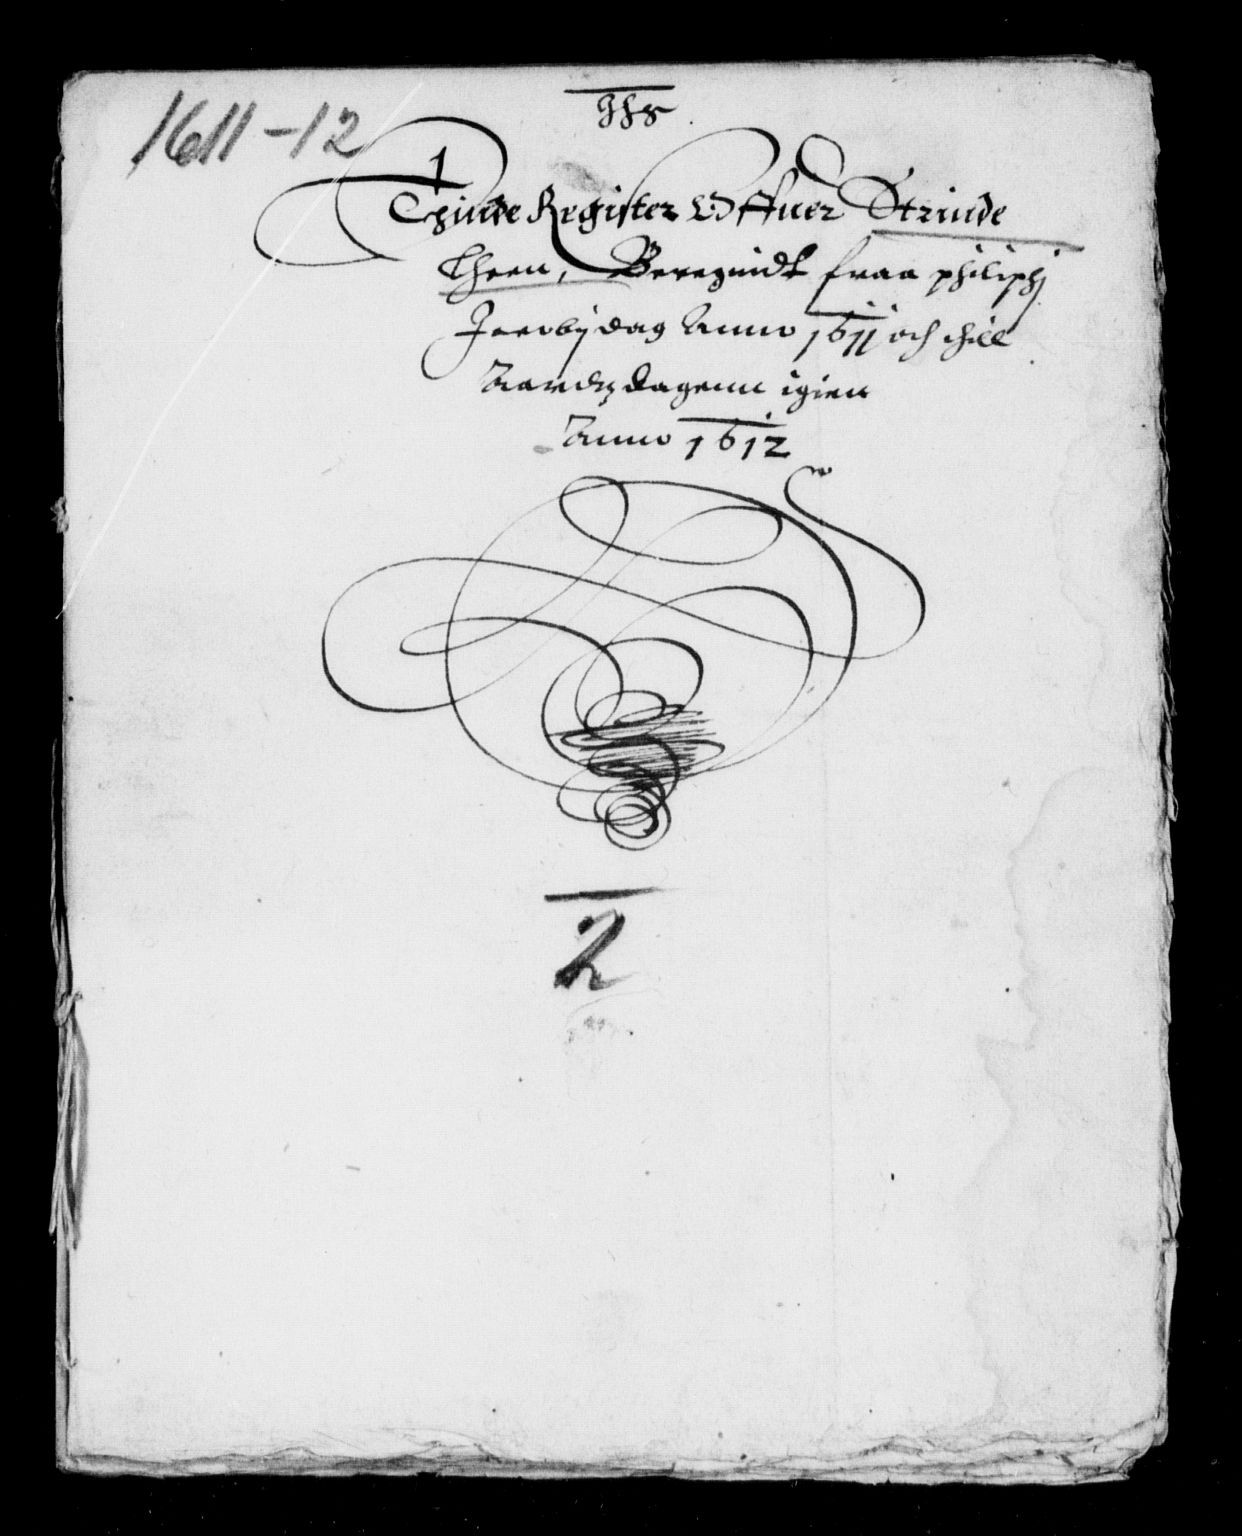 1611-12
Jhs
Thiende Register Offuer Strinde
Lheen, Beregnidt fraa philiphj
Jacobj dag Anno 1611 och thill
Aarsdagenn igien
Anno 1612
2